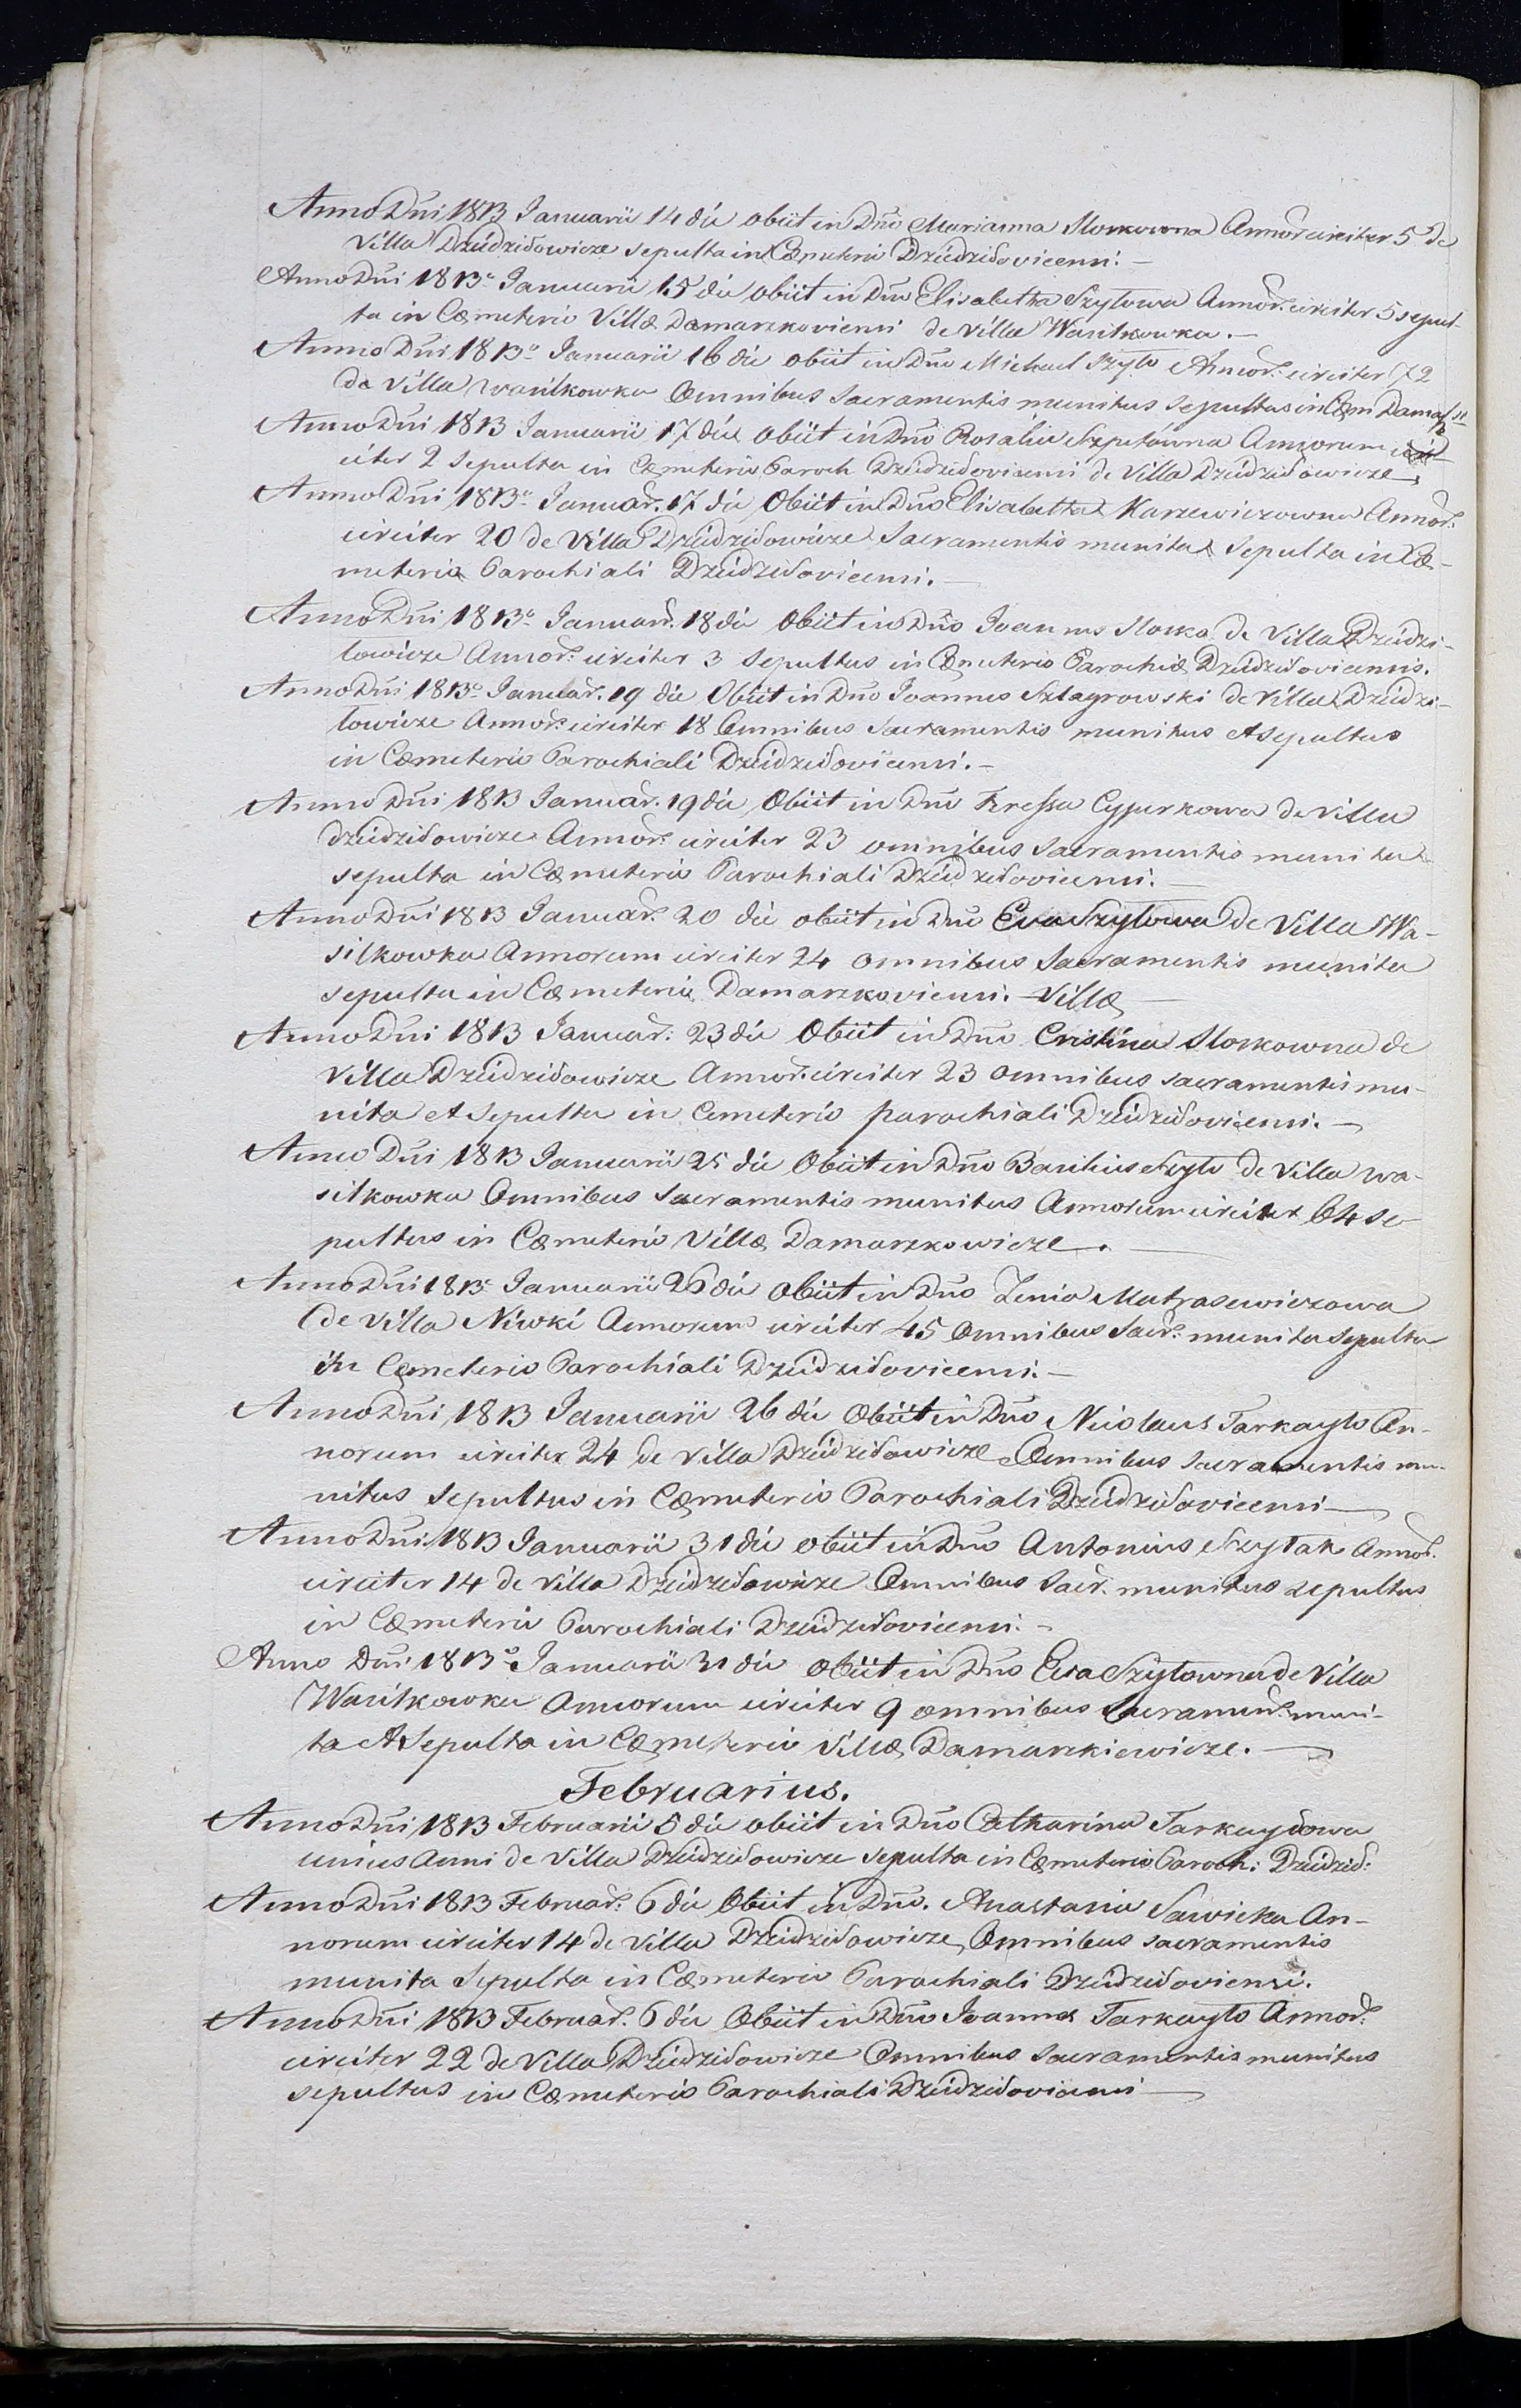 Anno Dni 1813 Januarii 14 die obiit in Dno Marianna Sloskowna Annor circiter 5 de
Villa Dziedziłowicze sepulta in Cœmeterio Dziedziłovicensi.
Anno Dni 1813º Januarii 15 die obiit in Dno Elisabetha Szyłowa Annor. circiter 5 sepul-
ta in Cœmeterio Villæ Damarzkoviensi de Villa Wasilkowka.
Anno Dni 1813º Januarii 16 die obiit in Dno Michael Szyło Annor. circiter 72
de Villa Wasilkowka Omnibus Sacramentis munitus Sepultus in Cœm Damarz
Anno Dni 1813 Januarii 17 die Obiit in Dno Rosalia Annorum
citer 2 Sepulta in Cœmeterio Paroch Dziedziłovicensi de Villa Dziedziłowicze
Anno Dni 1813º Januar. 17 die Obiit in Dno Elisabetha Karzewiczowna Annor.
circiter 20 de Villa Dziedziłowicze Sacramentis munita Sepulta in Cœ-
meterio Parochiali Dziedziłovicensi.
Anno Dni 1813º Januar. 18 die Obiit in Dno Joannes Slosko de Villa Dziedzi-
łowicze Annor. circiter 3 Sepultus in Cœmeterio Parochiæ Dziedziłovicensis.
Anno Dni 1813º Januar. 19 die Obiit in Dno Joannes Szlagrowski de Villa Dziedzi-
łowicze Annor. circiter 18 Omnibus Sacramentis munitus et sepultus
in Cœmeterio Parochiali Dziedziłoviensi.
Anno Dni 1813 Januar. 19 die Obiit in Dno Cyperkowa de Villa
Dziedziłowicze Annor. circiter 23 omnibus sacramentis munita
sepulta in Cœmeterio Parochiali Dziedziłoviensi.
Anno Dni 1813 Januar. 20 die obiit in Dno Eva Szyłowa de Villa Wa-
silkowka Annorum circiter 24 omnibus Sacramentis munita
sepulta in Cœmeterio Damarzkoviensi. Villæ
Anno Dni 1813 Januar: 23 die Obiit in Dno Cristina Sloskowna de
Villa Dziedziłowicze Annor. circiter 23 omnibus sacramentis mu-
nita et sepulta in Cemeterio parochiali Dziedziłoviensi.
Anno Dni 1813 Januarii 25 die Obiit in Dno Basilius Szyło de Villa Wa-
silkowka Omnibus Sacramentis munitus Annorum circiter 64 se
pultus in Cœmeterio Villæ Damarzkowicze.
Anno Dni 1813º Januarii 26 die obiit in Dno Zenia Matrasewiczowa
de Villa Niwki Annorum circiter 45 Omnibus Sacr: munita sepulta
in Cœmeterio Parochiali Dziedziłovicensi.
Anno Dni 1813 Januarii 26 die Obiit in Dno Nicolaus Tarkayło An-
norum circiter 24 de Villa Dziedziłowicze Omnibus Sacramentis mu-
nitus Sepultus in Cœmeterio Parochiali Dziedziłovicensi
Anno Dni 1813 Januarii 31 die obiit in Dno Antonius Szyłak Annor.
circiter 14 de Villa Dziedziłowicze Omnibus Sacr. munitus sepultus
in Cœmeterio Parochiali Dziedziłoviensi.
Anno Dni 1813º Januarii 31 die obiit in Dno Eva Szyłowna de Villa
Wasilkowka Annorum circiter 9 omnibus Sacrament. muni-
ta et Sepulta in Cœmeterio Villæ Damarzkiewicze.
Februarius.
Anno Dni 1813 Februarii 5 die obiit in Dno Catharina Tarkayłowa
unius Anni de Villa Dziedziłowicze sepulta in Cœmeterio Paroch: Dziedził:
Anno Dni 1813 Februar. 6 die Obiit in Dno. Anastasia Sawicka An-
norum circiter 14 de Villa Dziedziłowicze Omnibus sacramentis
munita Sepulta in Cœmeterio Parochiali Dziedziłoviensi.
Anno Dni 1813 Februar. 6 die Obiit in Dno Joannes Tarkayło Annor.
circiter 22 de Villa Dziedziłowicze Omnibus Sacramentis munitus
sepultus in Cœmeterio Parochiali Dziedziłoviensi